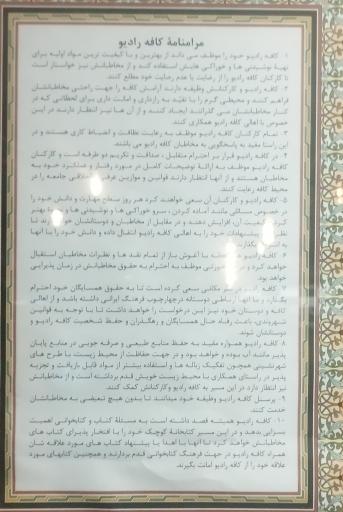 مرامنامهٔ کافه رادیو
۱- کافه رادیو خود را موظف می داند از بهترین و با کیفیت ترین مواد اولیه برای
تهیهٔ نوشیدنی ها و خوراکی هایش استفاده کند و از مخاطبانش نیز خواستار است
تا کارکنان کافه رادیو را از رضایت یا عدم رضایت خود مطلع کنند.
۲- کافه رادیو و کارکنانش وظیفه دارند آرامش کافه را جهت راحتی مخاطبانشان
فراهم کنند و محیطی گرم را با تقید به رازداری و امانت داری برای لحظاتی که در
کنار مخاطبانشان می گذرانند ایجاد کنند و از آن ها نیز انتظار دارند در این
خصوص با اهالی کافه رادیو همکاری کنند.
۳- تمام کارکنان کافه رادیو موظف به رعایت نظافت و انضباط کاری هستند و در
این راستا مقید به پاسخگویی به مخاطبان کافه رادیو می باشند.
۴- در کافه رادیو قرار بر احترام متقابل، صداقت و تکریم دو طرفه است و کارکنان
کافه رادیو موظف به ارائهٔ توضیحات کامل در مورد رفتار و عملکرد خود به
مخاطبان هستند و از آنها انتظار دارند قوانین و موازین عرفی اخلاقی جامعه را در
محیط کافه رعایت کنند.
۵- کافه رادیو و کارکنان آن سعی خواهند کرد هر روز سطح مهارت و دانش خود را
در خصوص مسائلی مانند آماده کردن، سرو خوراکی ها و نوشیدنی ها و بهتر
کیفیت آن، افزایش دهند و در مقابل از مخاطبان و دوستانشان تا
پیشنهادات خود را به اهالی کافه رادیو انتقال داده و دانش خود را با آنها
بگذارند.
۶- کافه رادیو با آغوش باز از تمام نقد ها و نظرات مخاطبان استقبال
خواهد کرد و موظف به احترام به حقوق مخاطبانش در زمان پذیرایی
خواهد بود.
۷- کافه رادیو مکانی سعی کرده است تا به حقوق همسایگان خود احترام
بگذارد و با آنها ارتباطی دوستانه در چهارچوب فرهنگ ایرانی داشته باشد و از اهالی
کافه و دوستان خود نیز این درخواست را خواهد داشت تا با توجه به قوانین
شهروندی، باعث رفاه حال همسایگان و رهگذران و حفظ شخصیت کافه رادیو و
دوستانشان شوند.
۸- کافه رادیو همواره مقید به حفظ منابع طبیعی و صرفه جویی در منابع پایان
پذیر مانند آب بوده و خواهد بود و در جهت حفاظت از محیط زیست با طرح های
شهرنشینی همچون تفکیک زباله ها و استفاده بیشتر از مواد قابل بازیافت و تجزیه
پذیر در راستای همکاری با محیط زیست خویش قدم برداشته است و از مخاطبانش
نیز انتظار دارد در این مسیر به کافه رادیو و کارکنانش کمک کنند.
۹- پرسنل کافه رادیو وظیفه خود میدانند تا بدون هیچ تبعیضی به مخاطبانشان
خدمت کنند.
۱۰- کافه رادیو همیشه قصد داشته است به مسئلهٔ کتاب و کتابخوانی اهمیت
بسزایی بدهد و در این مسیر کتابخانهٔ کوچک خود را با افتخار پذیرای کتاب های
مخاطبانش خواهد کرد تا آنها با اهدا یا پیشنهاد کتاب های مورد علاقه شان
همراه کافه رادیو در جهت فرهنگ کتابخوانی قدم بردارند و همچنین کتابهای مورد
علاقه خود را از کافه رادیو امانت بگیرند.